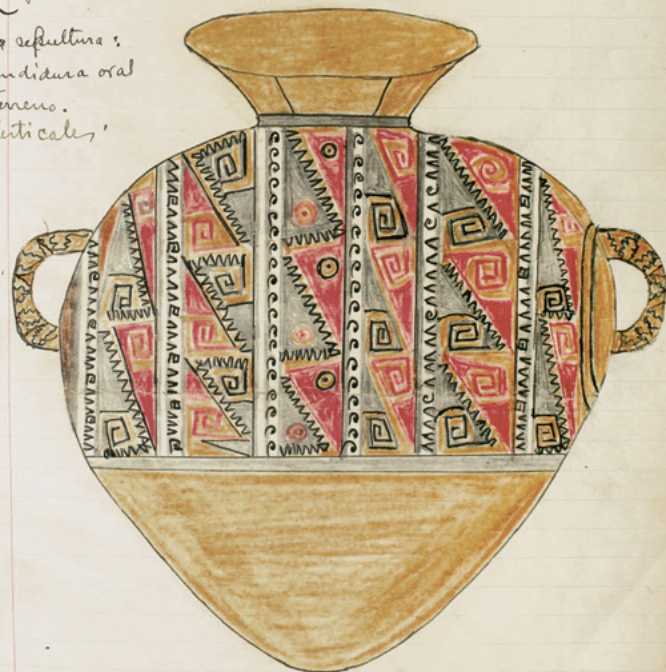 sepultura:
ndidura oral
erreno.
erticales